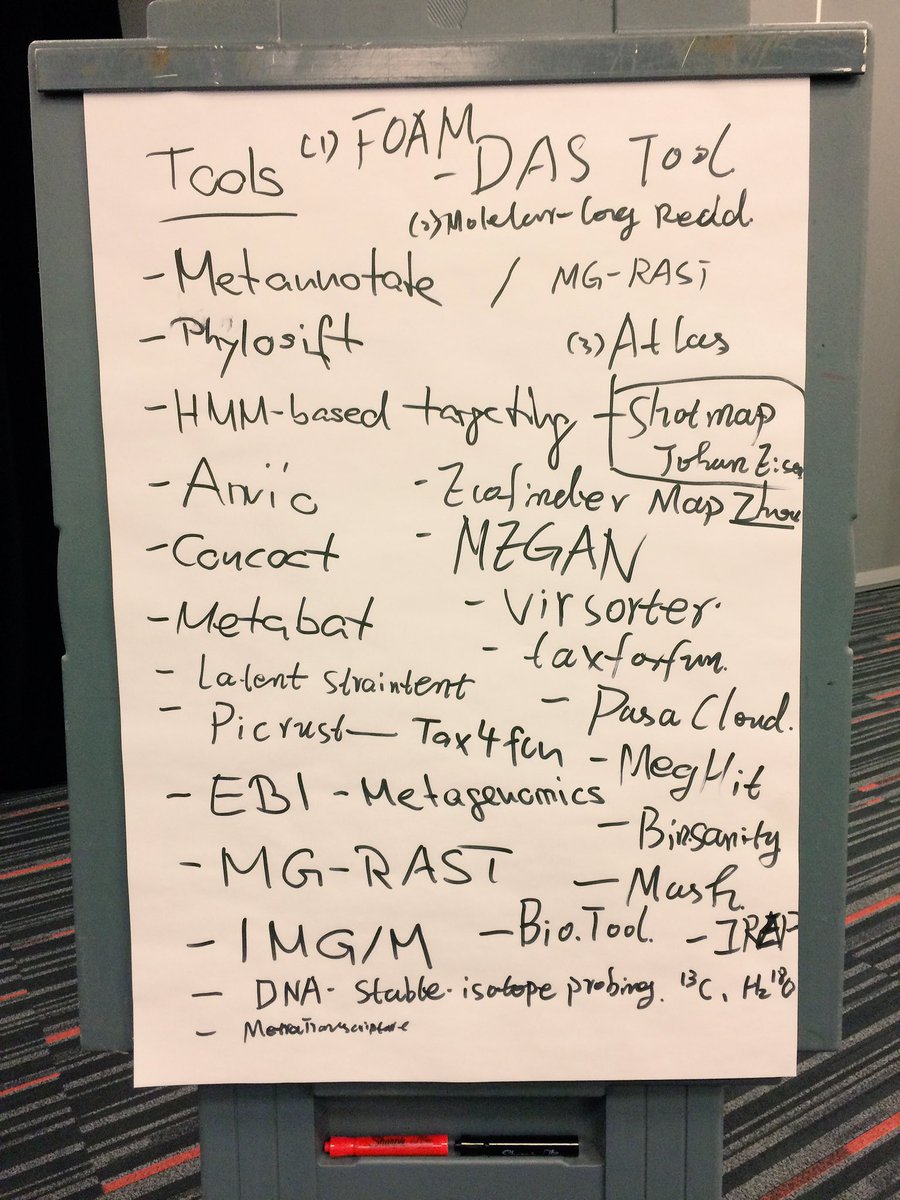 Tools (1) FOAM
- DAS Tool
(2) Molekur-long Redd.
- Metannotate / MG-RAST
- Phylosift (3) Atlas
- HMM-based targeting - Shotmap
Johan
- Anvio - Ecofinder Map Zhou
- Concoct - MEGAN
- Metabat - Virsorter.
- taxforfun.
- Latent straintent
- Pasa Cloud.
- Picrust — Tax4fun
- MegHit
- EBI - Metagenomics
- Binsanity
- MG-RAST
- Mash.
- IMG/M - Bio.Tool. - IRAP
- DNA- Stable-isotope probing. ¹³C, H₂¹⁸O